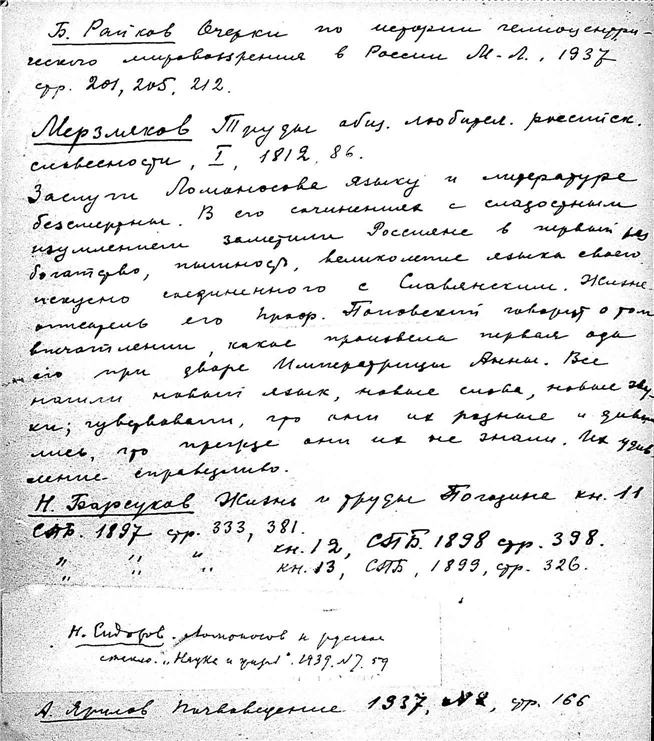 Б. Райков Очерки по истории гелиоцентри-
ческого мировоззрения в России М-Л., 1937
стр. 201, 205, 212.
Мерзляков Труды общ. любител. российск.
словесности, I, 1812, 86.
Заслуги Ломоносова языку и литературе
безсмертны. В его сочинениях с сладостным
изумлением заметили Россияне в первый раз
богатство, пышность, великолепие языка своего
искусно соединенного с Славянским. Жизне-
описатель его проф. Поповский говорит о том
впечатлении, какое произвела первая ода
его при дворе Императрицы Анны. Все
нашли новый язык, новые слова, новые зву-
ки; чувствовали, что они их родные и диви-
лись, что прежде они их не знали. Их удив-
ление справедливо.
Н. Барсуков Жизнь и труды Погодина кн. 11
СПБ. 1897 стр. 333, 381.
" " " кн. 12, СПБ. 1898 стр. 398.
" " " кн. 13, СПБ, 1899, стр. 326.
Н. Сидоров. Ломоносов и русское
стекло. „Наука и жизнь". 1939. №7. 59
А. Ярилов Почвоведение 1937, №2, стр. 166